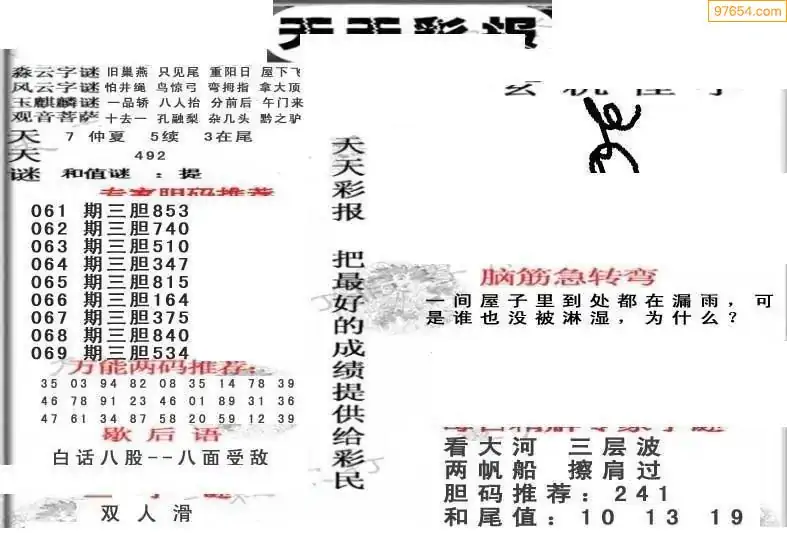 97654.com
天天彩报
森云字谜 旧巢燕 只见尾 重阳日 屋下飞
风云字谜 怕井绳 鸟惊弓 弯拇指 拿大顶
玉麒麟谜 一品轿 八人抬 分前后 午门来
观音菩萨 十去一 孔融梨 杂几头 黔之驴
天 7 仲夏 5续 3在尾
天 492
谜 和值谜 : 提
专家胆码推荐
061 期三胆853
062 期三胆740
063 期三胆510
064 期三胆347
065 期三胆815
066 期三胆164
067 期三胆375
068 期三胆840
069 期三胆534
万能两码推荐:
35 03 94 82 08 35 14 78 39
46 78 91 23 46 01 89 31 36
47 61 34 87 58 20 59 12 39
歇后语
白话八股--八面受敌
双人滑
天天彩报 把最好的成绩提供给彩民
脑筋急转弯
一间屋子里到处都在漏雨，可
是谁也没被淋湿，为什么？
看大河 三层波
两帆船 擦肩过
胆码推荐: 241
和尾值: 10 13 19